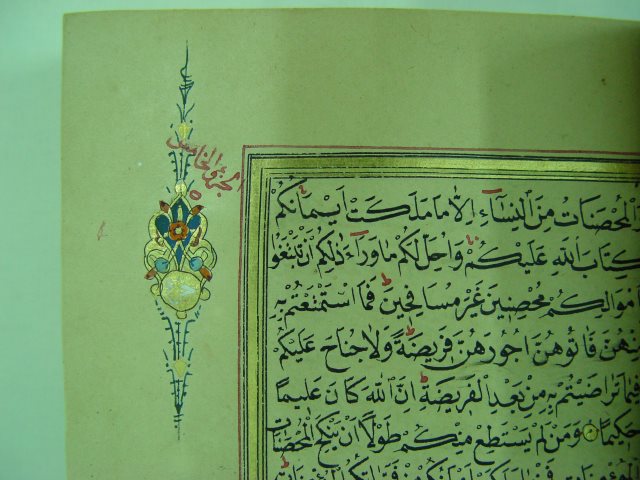 الجزؤ الخامس
والمحصنات من النساء الا ما ملكت ايمانكم
كتاب الله عليكم واحل لكم ما وراء ذلكم ان تبتغوا
باموالكم محصنين غير مسافحين فما استمتعتم به
منهن فاتوهن اجورهن فريضة ولا جناح عليكم
فيما تراضيتم به من بعد الفريضة ان الله كان عليما
حكيما ومن لم يستطع منكم طولا ان ينكح المحصنات